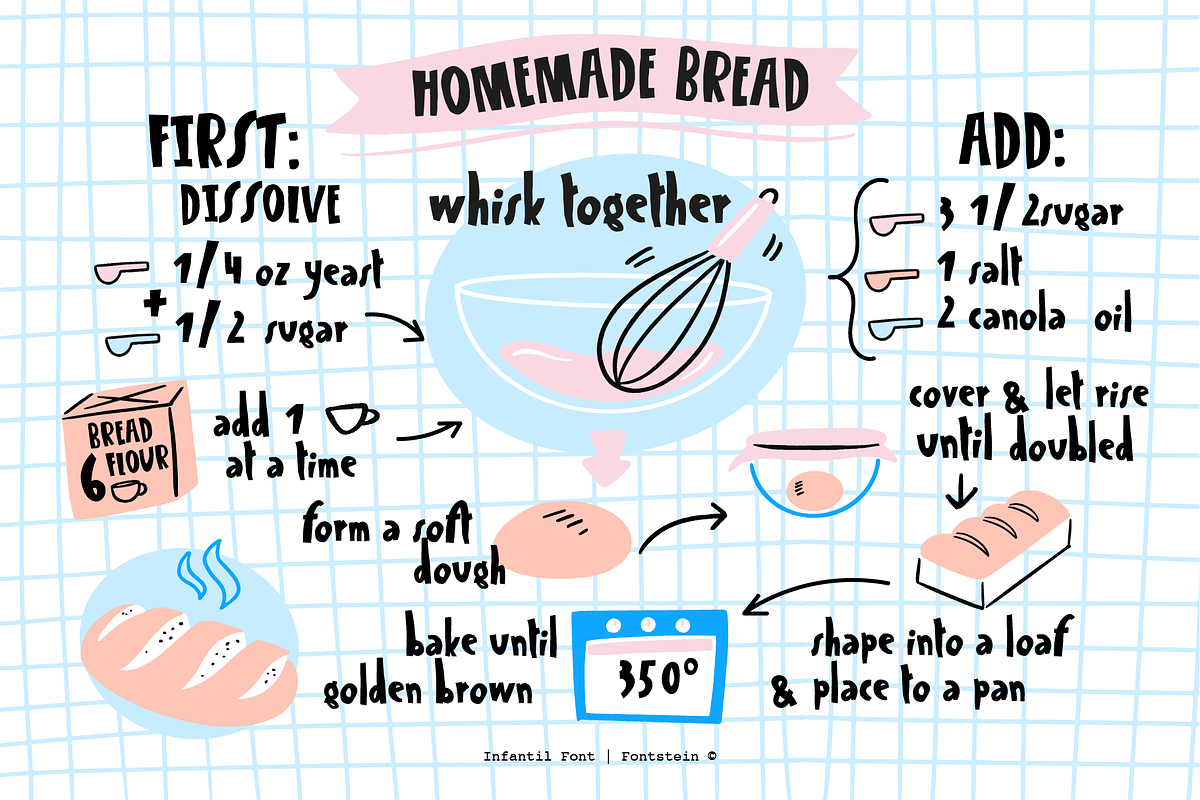 HOMEMADE BREAD
FIRST:
DISSOLVE
1/4 oz yeast
+
1/2 sugar
whisk together
ADD:
3 1/2sugar
1 salt
2 canola oil
BREAD
6 FLOUR
add 1
at a time
cover & let rise
until doubled
form a soft
dough
shape into a loaf
& place to a pan
bake until
golden brown
350°
Infantil Font | Fontstein ©